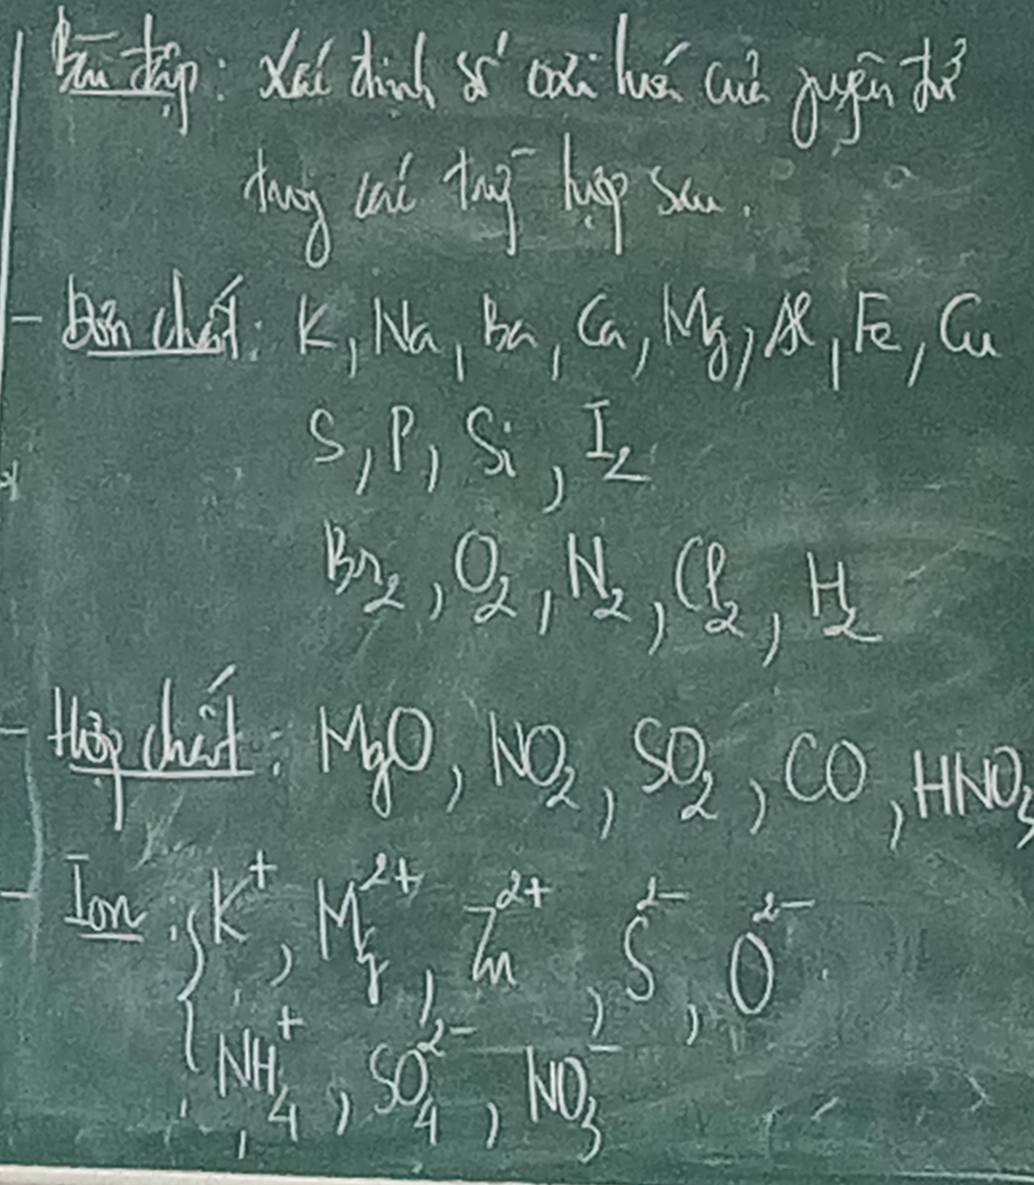 Bài tập: Xác định số oxi hoá của nguyên tử
trong các trg̃ hợp sau.
- Đơn chất: K, Na, Ba, Ca, Mg, Al, Fe, Cu
S, P, Si, I₂
Br₂, O₂, N₂, Cl₂, H₂
- Hợp chất: MgO, NO₂, SO₂, CO, HNO₃
- Ion: { K⁺, Mg²⁺, Zn²⁺, S²⁻, O²⁻.
NH₄⁺, SO₄²⁻, NO₃⁻